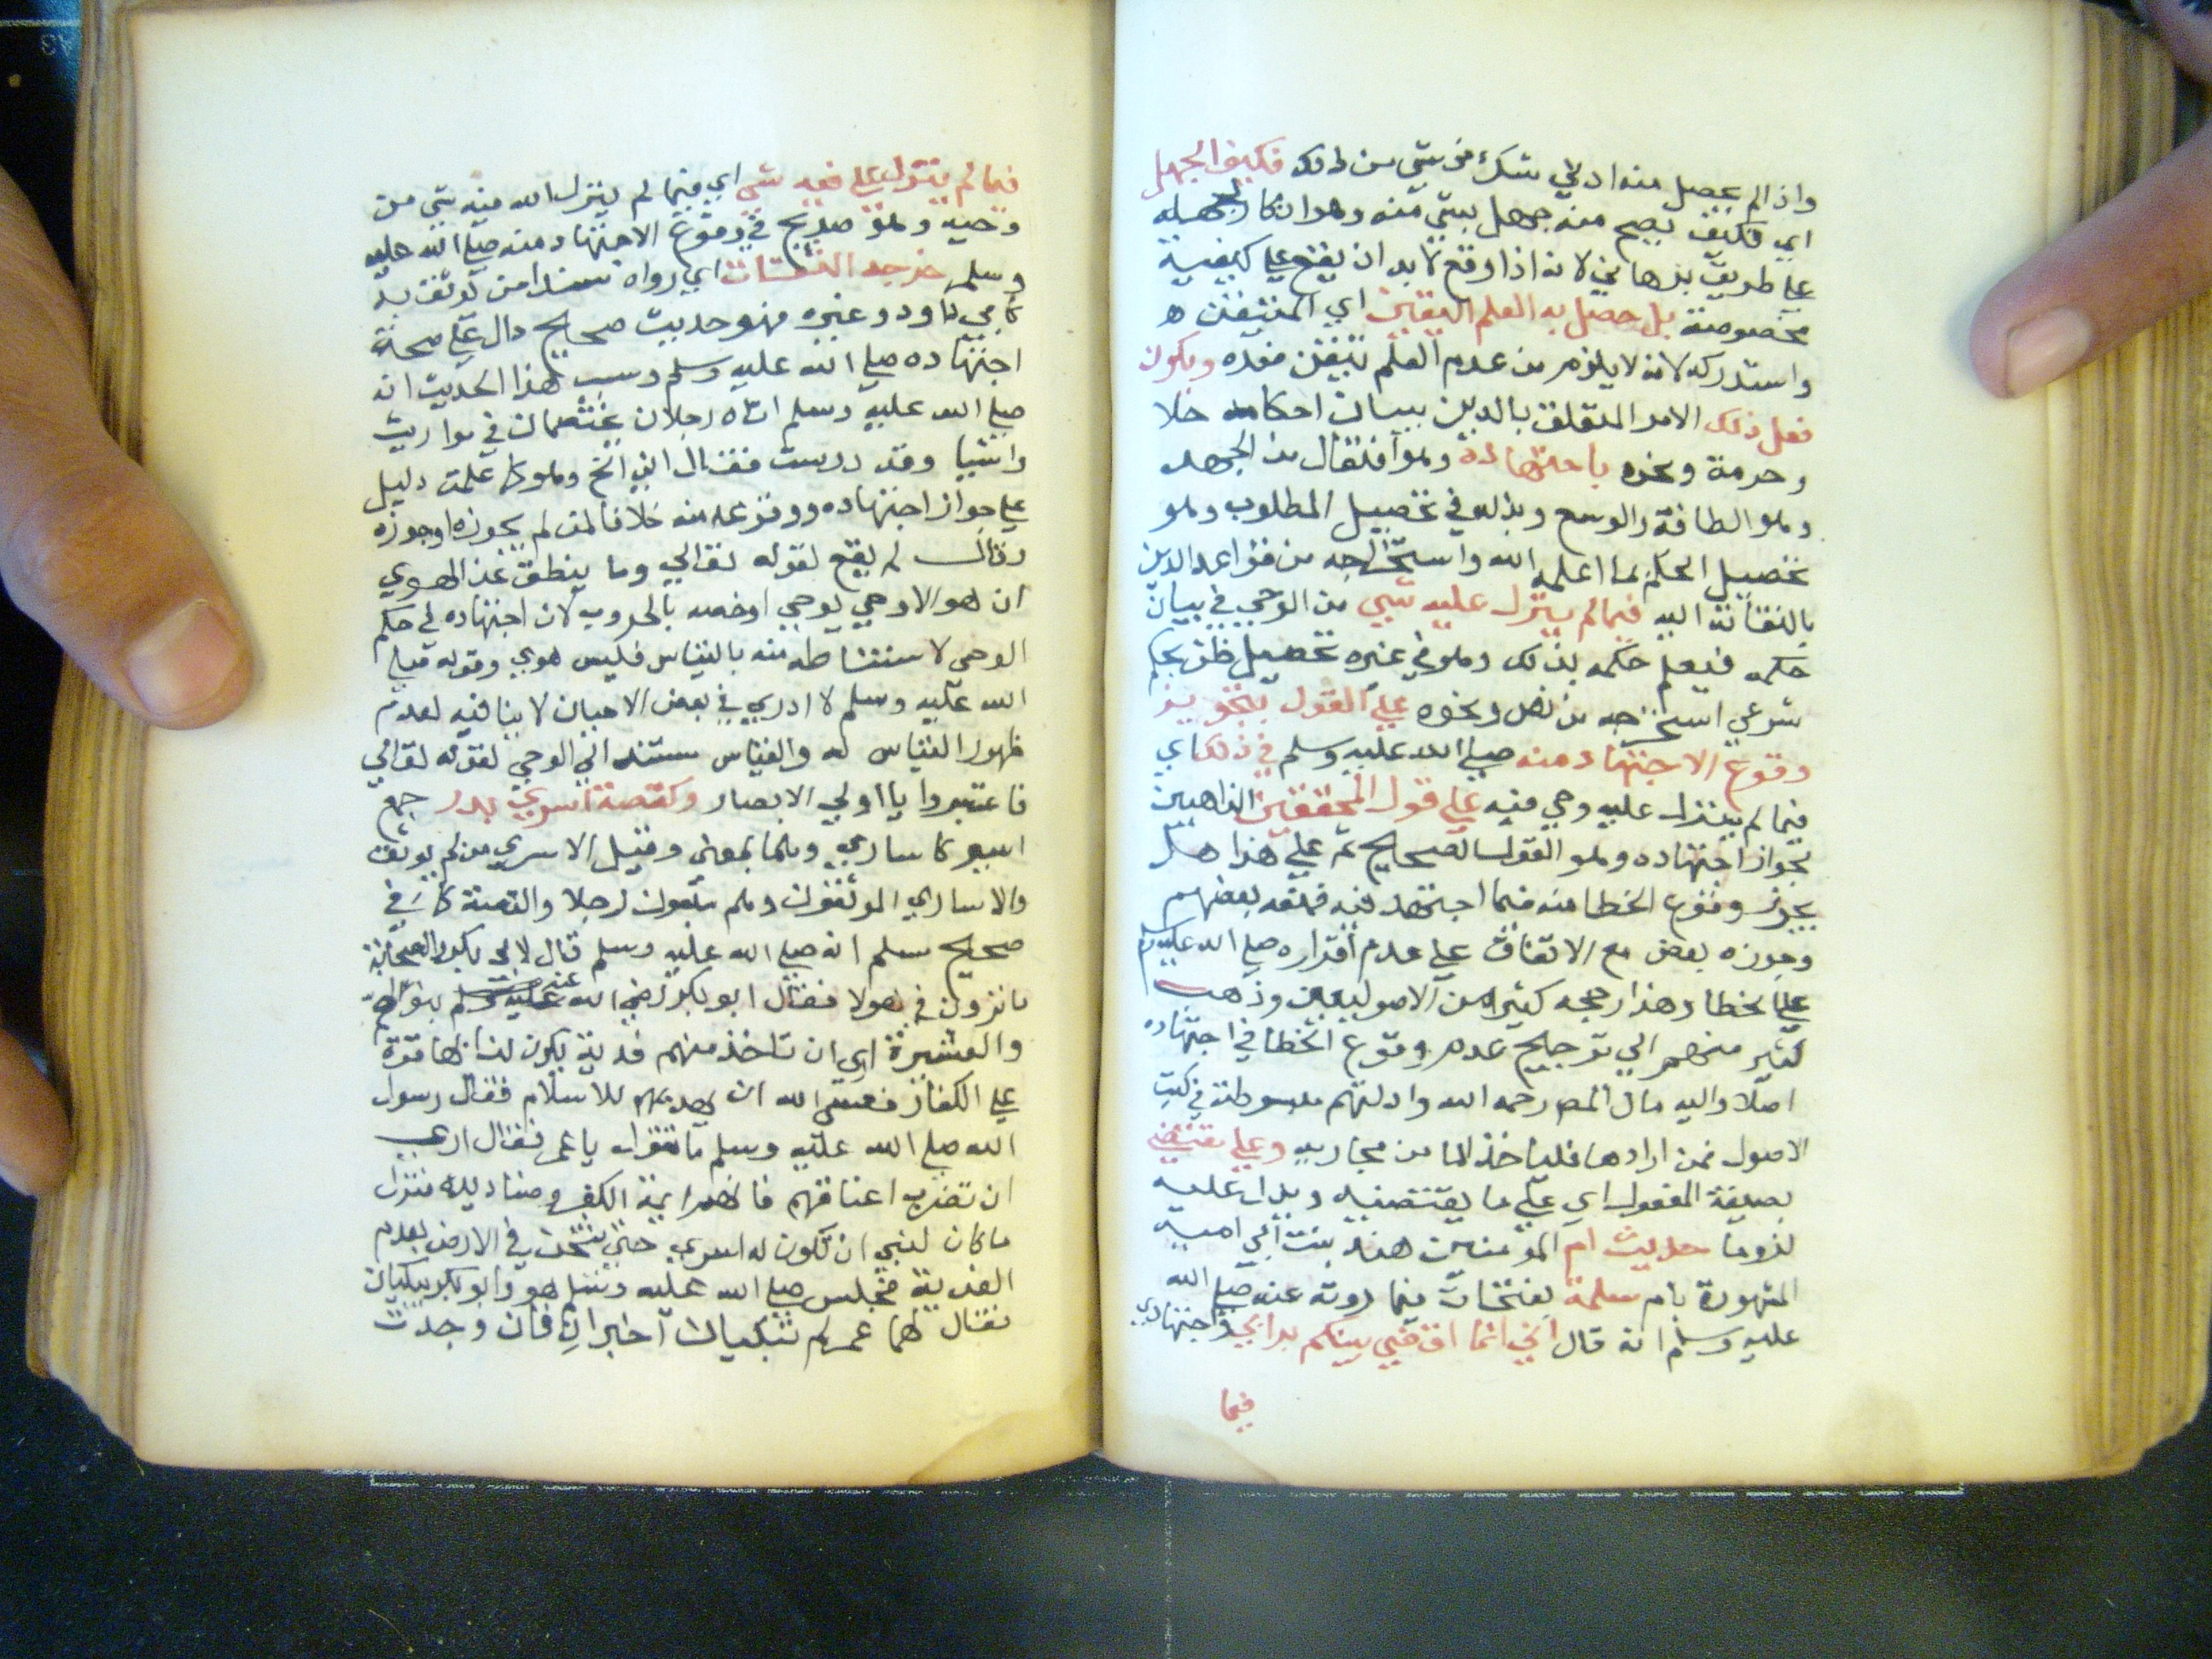 واذا لم يحصل منه ادني شك في شي من ذلك فكيف الجهل
اي فكيف يصح منه جهل بشي منه وهو انكار لجهله
علي طريق برهاني لانه اذا وقع لابد ان يقع علي كيفية
مخصوصة بل حصل به العلم اليقين اي المتيقن
واستدركه لانه لا يلزم من عدم العلم تيقن فقده ويكون
فعل ذلك الامر المتعلق بالدين ببيان احكامه حلا
وحرمة ونحوه باجتهاده وهو افتعال من الجهد
وهو الطاقة والوسع وبذله في تحصيل المطلوب وهو
تحصيل الحكم بما اعلمه الله واستخراجه من قواعد الدين
بالتفاته اليه فيما لم ينزل عليه شي من الوحي في بيان
حكمه فيعلم حكمه بذلك وهو في غيره تحصيل ظن بحكم
شرعي استخرجه من نص ونحوه علي القول بتجويز
وقوع الاجتهاد منه صلي الله عليه وسلم في ذلك اي
فيما لم ينزل عليه وحي فيه علي قول المحققين الذاهبين
لجواز اجتهاده وهو القول الصحيح ثم علي هذا هل
يجوز وقوع الخطا منه فيما اجتهد فيه فمنعه بعضهم
وجوزه بعض مع الاتفاق علي عدم اقراره صلي الله عليه وسلم
علي الخطا وهذا رجحه كثير من الاصوليين وذهب
كثير منهم الي ترجيح عدم وقوع الخطا في اجتهاده
اصلا واليه مال المص رحمه الله وادلتهم مبسوطة في كتب
الاصول فمن ارادها فلياخذ الما من مجاريه وعلي مقتضي
بصيغة المفعول اي علي ما يقتضيه ويدل عليه
لزوما حديث ام المؤمنين هند بنت ابي امية
المشهورة بام سلمة بفتحات فيما روته عنه صلي الله
عليه وسلم انه قال اني انما اقضي بينكم برايي واجتهادي
فيما
فيما لم ينزل علي فيه شي اي فيما لم ينزل الله فيه شي من
وحيه وهو صريح في وقوع الاجتهاد منه صلي الله عليه
وسلم خرجه الثقات اي رواه مسندا من توثق به
كابي داود وغيره فهو حديث صحيح دال علي صحة
اجتهاده صلي الله عليه وسلم وسبب هذا الحديث انه
صلي الله عليه وسلم اتاه رجلان يختصمان في مواريث
واشيا وقد درست فقال اني الخ وهو كما علمت دليل
علي جواز اجتهاده ووقوعه منه خلافا لمن لم يجوزه او جوزه
وقال لم يقع لقوله تعالي وما ينطق عن الهوي
ان هو الا وحي يوحي اوخصه بالحروب لان اجتهاده في حكم
الوحي لاستنباطه منه بالقياس فليس هوي وقوله صلي
الله عليه وسلم لا ادري في بعض الاحيان لا ينافيه لعدم
ظهور القياس له والقياس مستند الي الوحي لقوله تعالي
فاعتبروا يا اولي الابصار وكقصة اسري بدر جمع
اسير كاساري وهما بمعني وقيل الاسري من لم يوثق
والاساري الموثقون وهم سبعون رجلا والقصة كما في
صحيح مسلم انه صلي الله عليه وسلم قال لابي بكر والصحابة
ما ترون في هولا فقال ابو بكر رضي الله عنه هم بنو العم
والعشيرة اري ان تاخذ منهم فدية يكون لنا بها قوة
علي الكفار فعسي الله ان يهديهم للاسلام فقال رسول
الله صلي الله عليه وسلم ما تقول يا عمر فقال اري
ان تضرب اعناقهم فانهم ايمة الكفر وصناديده فنزل
ما كان لنبي ان تكون له اسري حتي يثخن في الارض بعدم
الفدية فجلس صلي الله عليه وسلم هو وابو بكر يبكيان
فقال لهما عمر لم تبكيان اخبراني فان وجدت